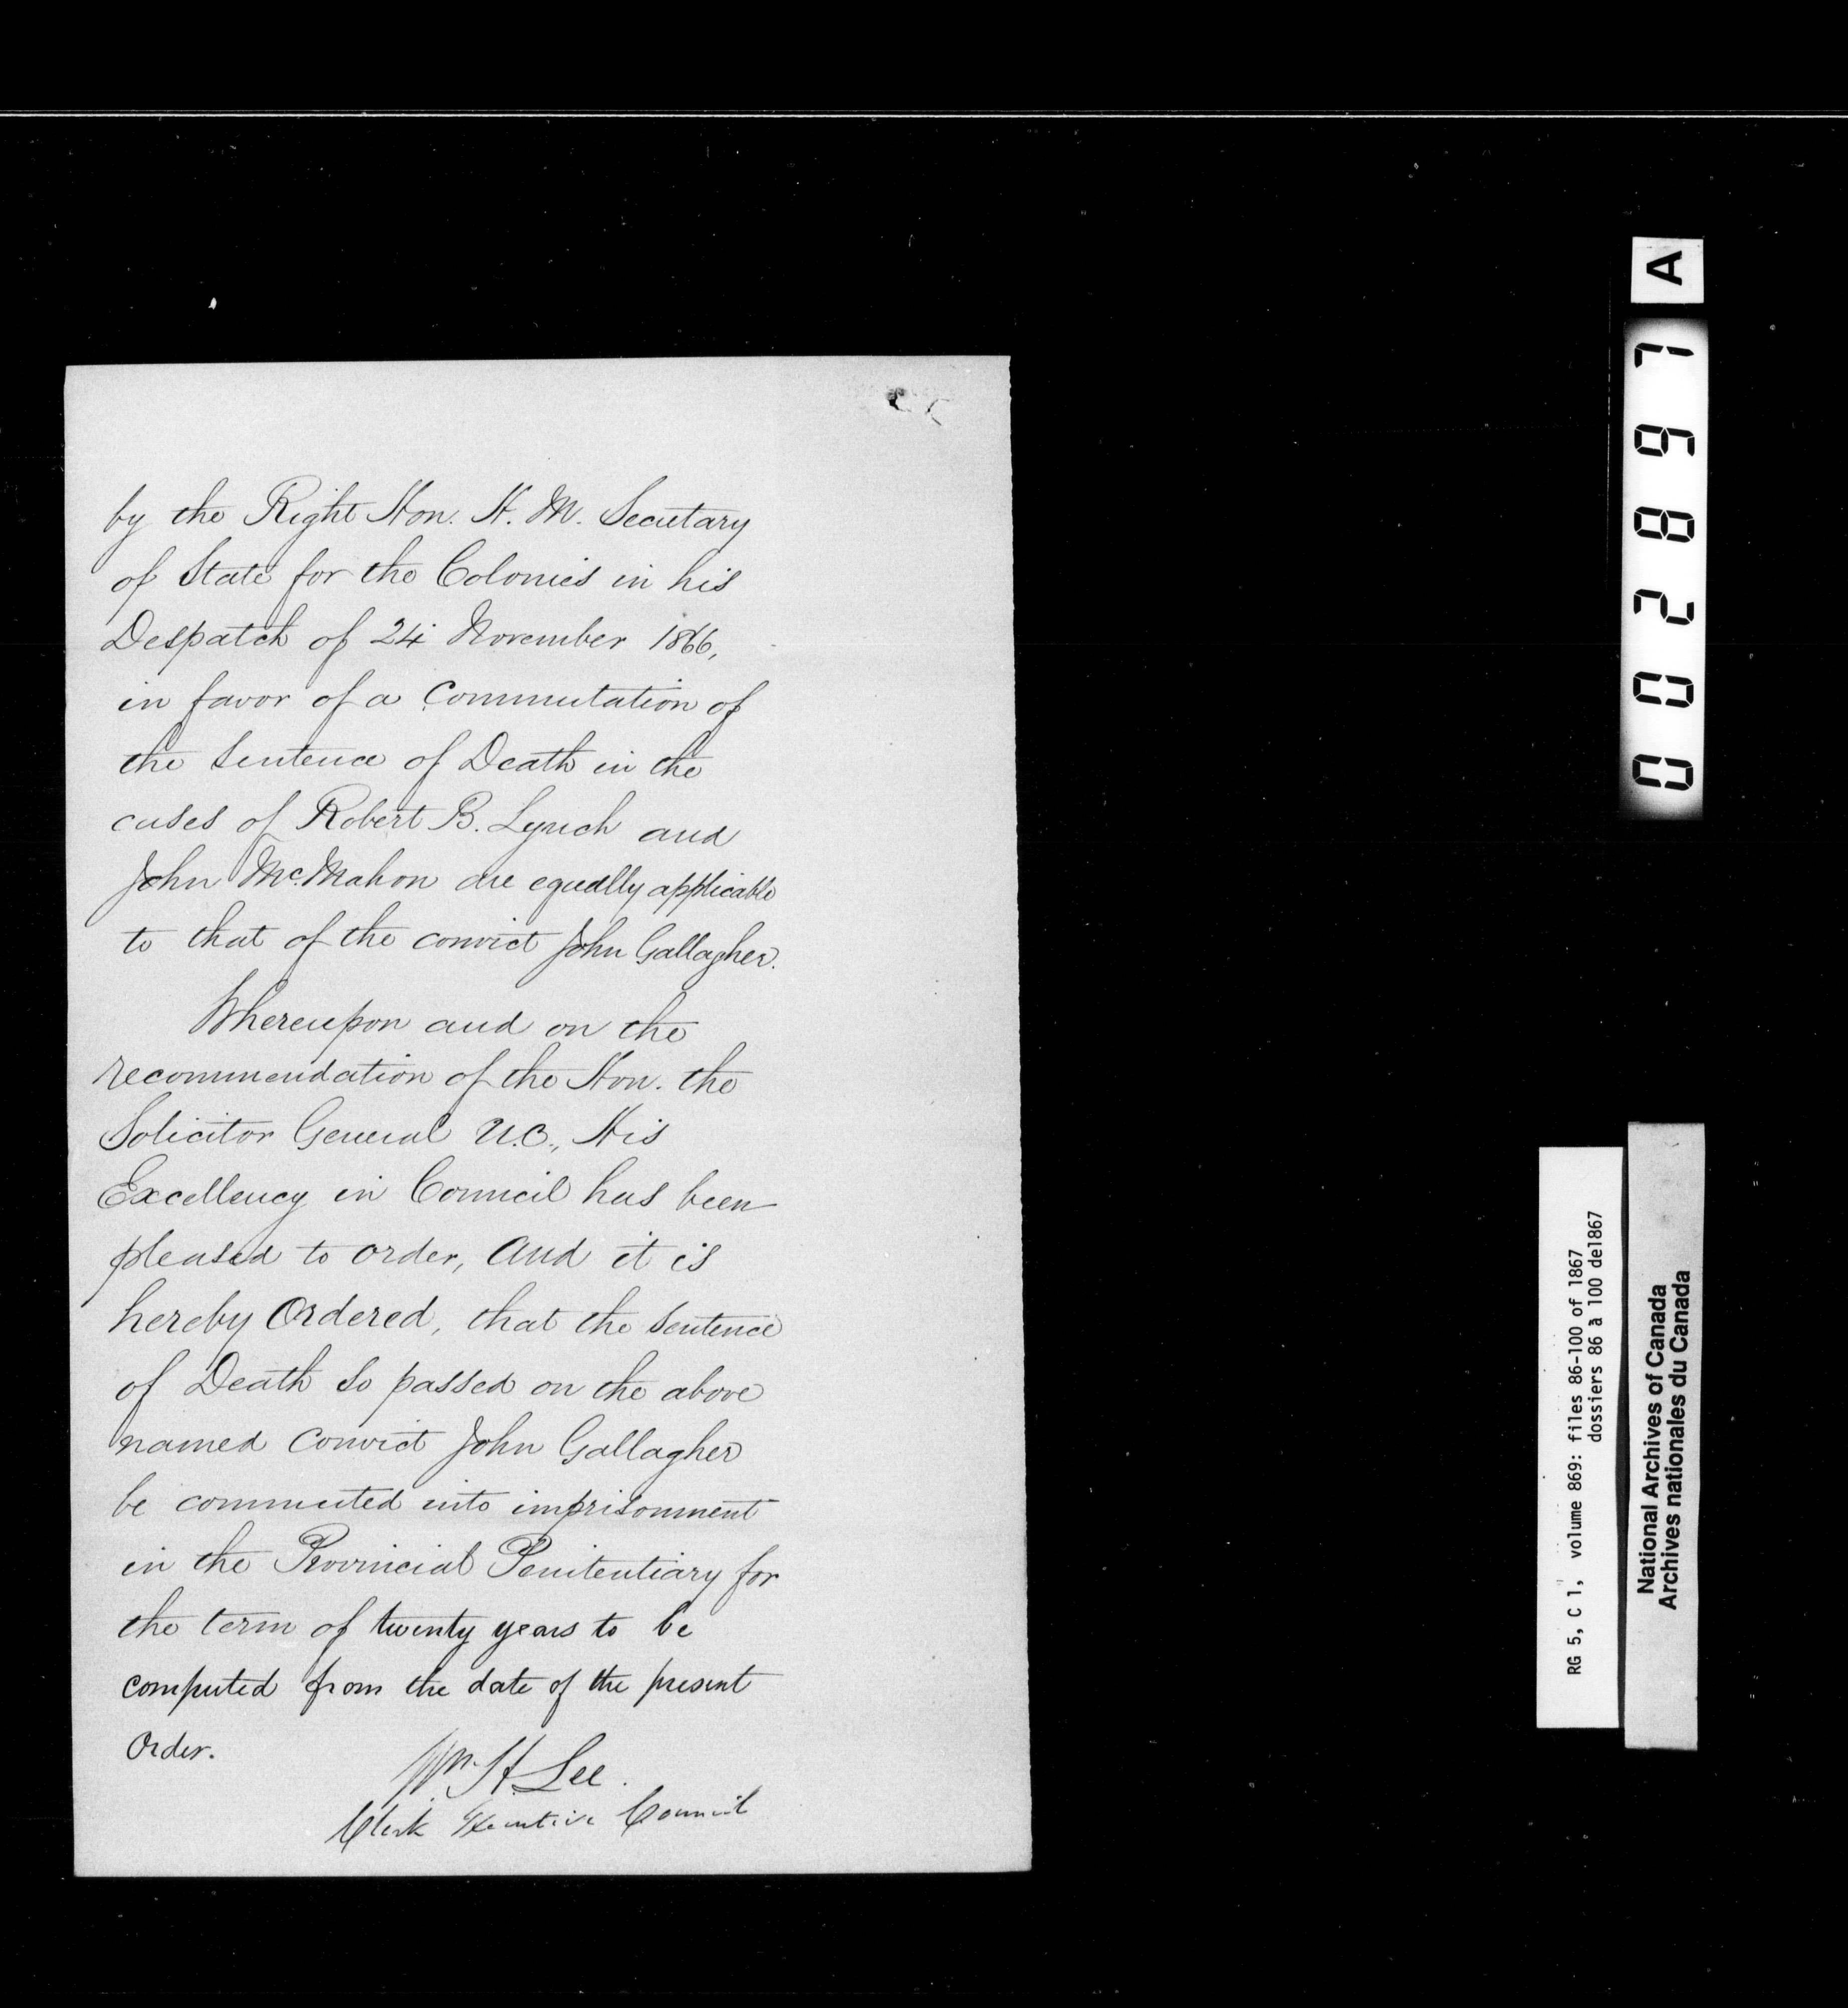 by the Right Hon. H. M. Secretary
of State for the Colonies in his
Despatch of 24 November 1866,
in favor of a Commutation of
the Sentence of Death in the
cases of Robert B. Lynch and
John McMahon are equally applicable
to that of the convict John Gallagher.
Whereupon and on the
recommendation of the Hon. the
Solicitor General U.C., His
Excellency in Council has been
pleased to order, and it is
hereby Ordered, that the Sentence
of Death So passed on the above
named Convict John Gallagher
be commuted into imprisonment
in the Provincial Penitentiary for
the term of twenty years to be
computed from the date of the present
Order.
Wm. H. Lee.
Clerk Executive Council
A
002897
RG 5, C 1, volume 869: files 86-100 of 1867
dossiers 86 à 100 de1867
National Archives of Canada
Archives nationales du Canada